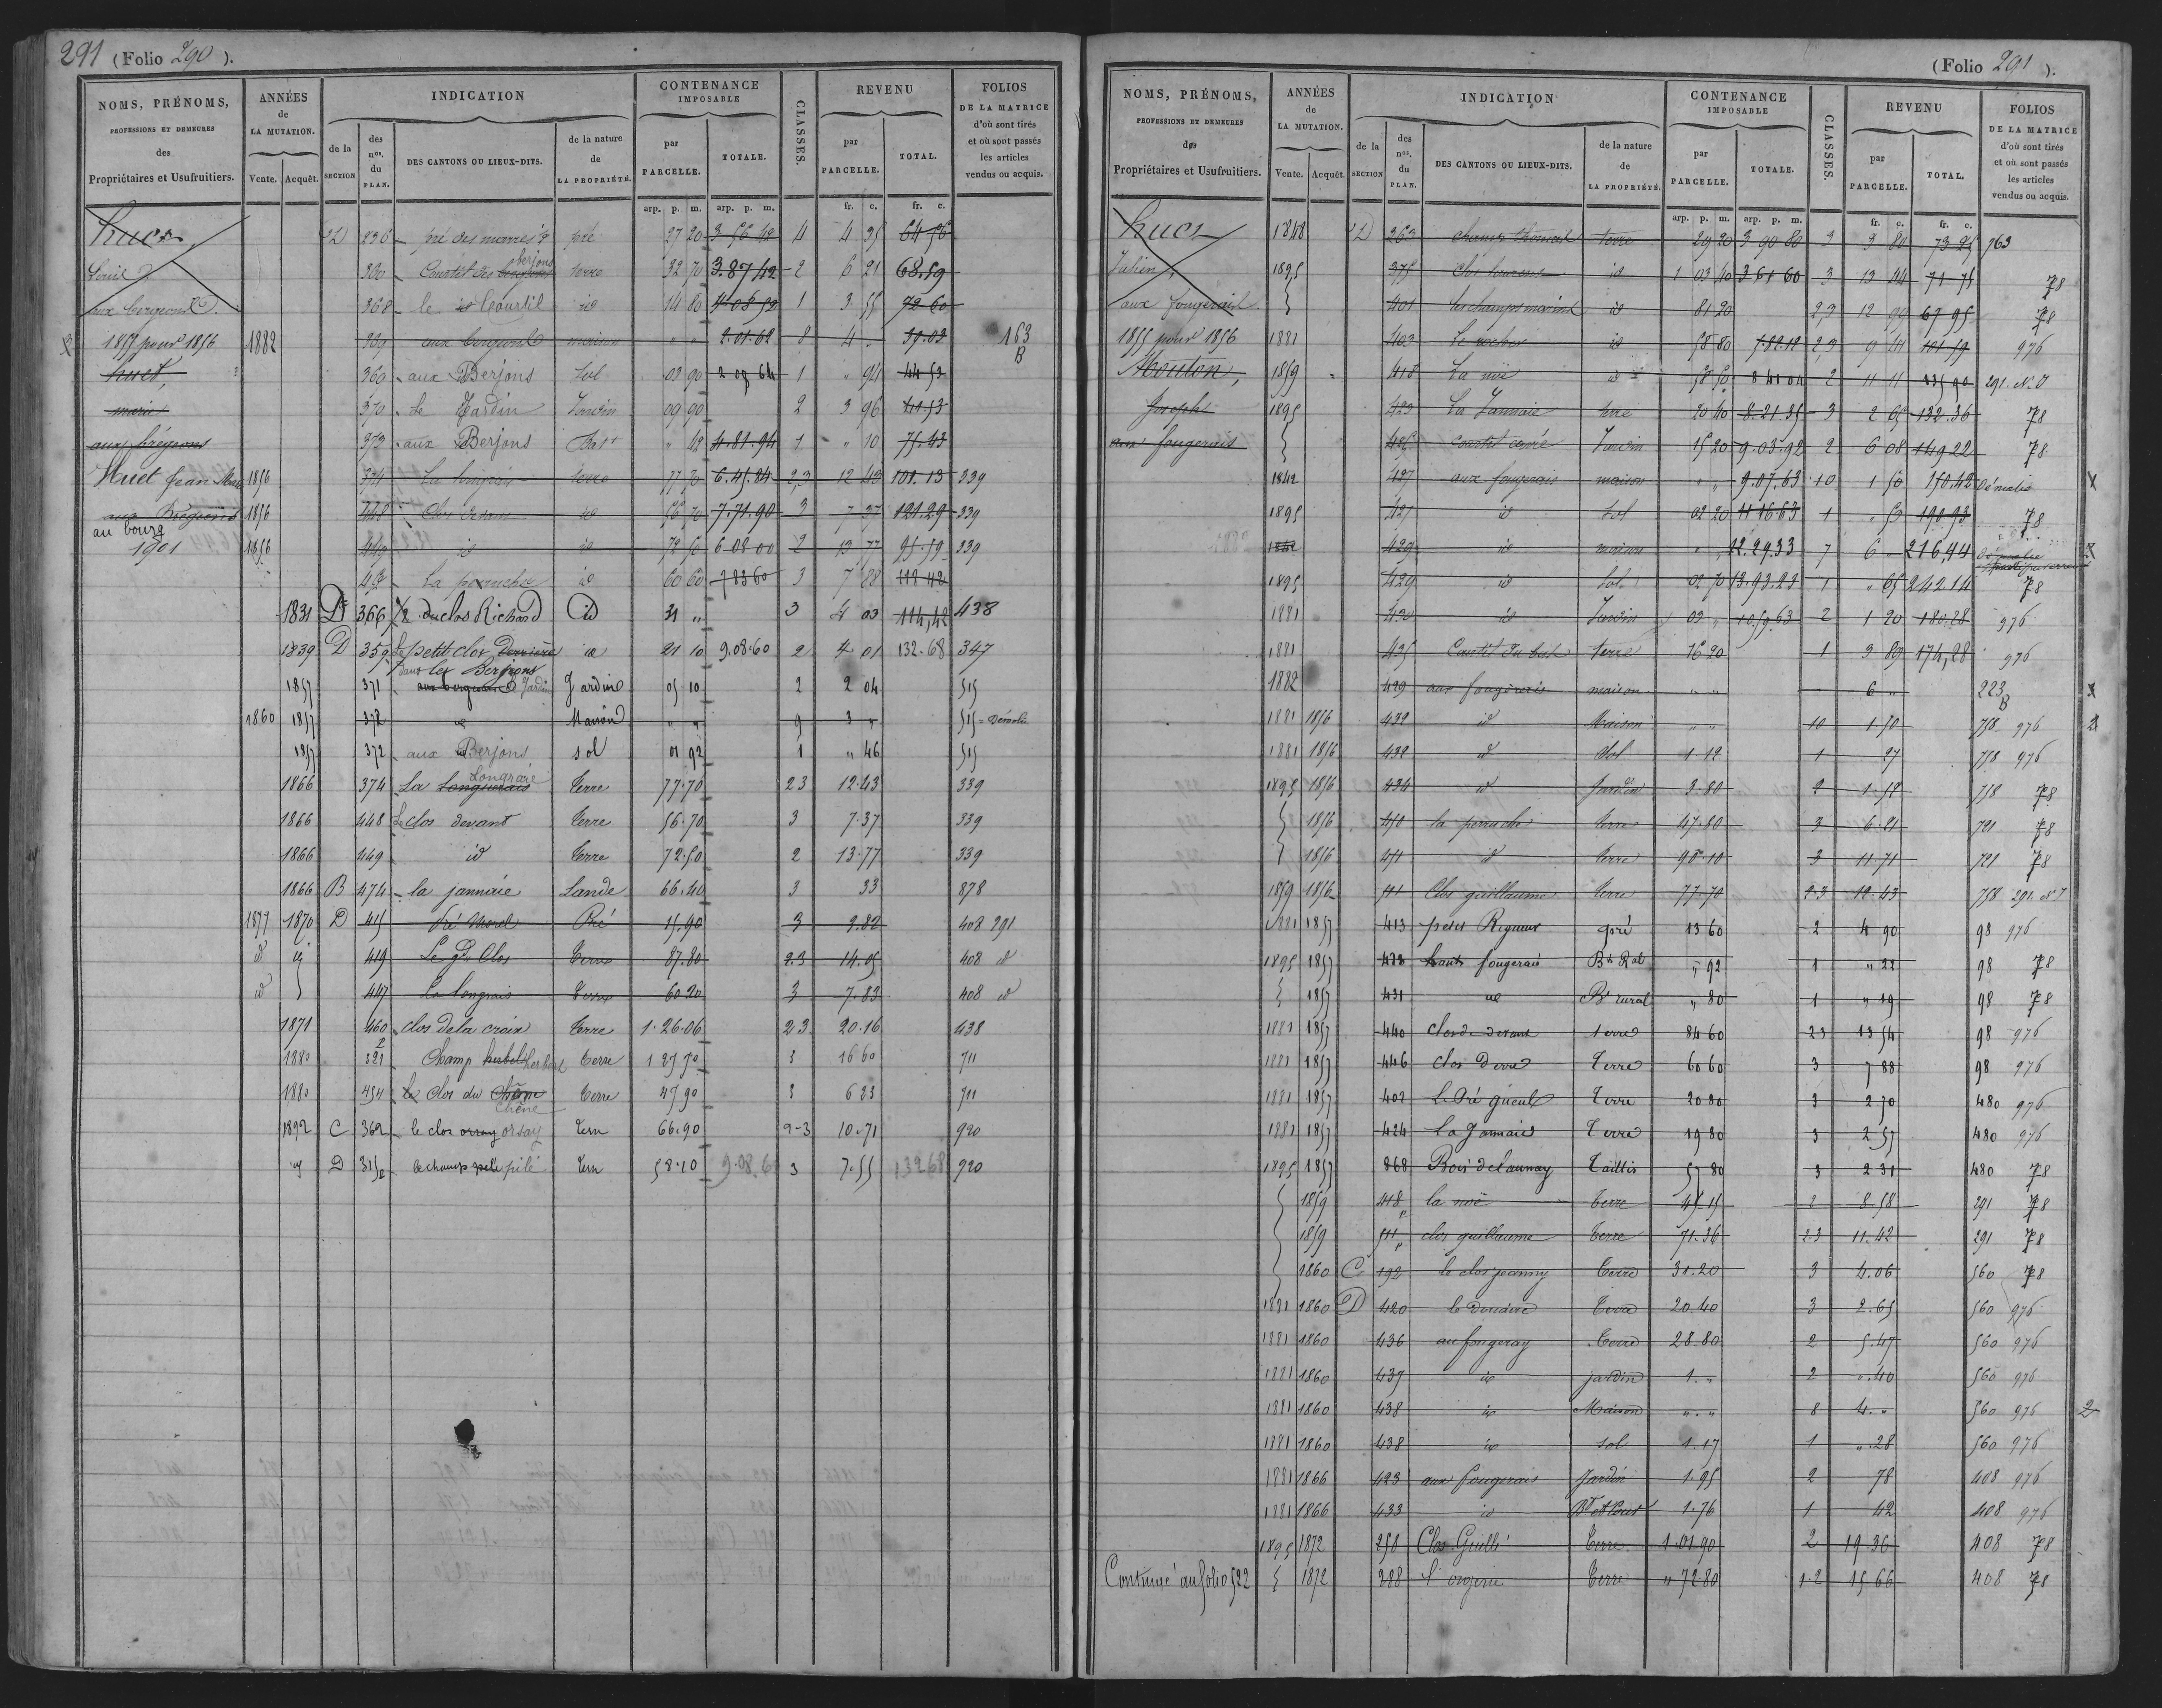 291 (Folio 290).
NOMS, PRÉNOMS, PROFESSIONS ET DEMEURES des Propriétaires et Usufruitiers.
ANNÉES de LA MUTATION. Vente. Acquêt.
INDICATION de la SECTION des nos. du PLAN. DES CANTONS OU LIEUX-DITS. de la nature de LA PROPRIÉTÉ.
CONTENANCE IMPOSABLE par PARCELLE. TOTALE.
CLASSES.
REVENU par PARCELLE. TOTAL.
FOLIOS DE LA MATRICE d'où sont tirés et où sont passés les articles vendus ou acquis.
arp. p. m. arp. p. m. fr. c. fr. c.
D 236 pré des marres pré 27 20 3 56 42 4 4 35 64 56
berjons
360 Courtil des terre 32 70 3.87 42 2 6 21 68.59
368 le Courtil id 14 80 1 3 55 72 60
1855 pour 1856 1882 maison 2.01.62 8 4 163 B
huet, 360 aux Berjons Sol 03 90 1 94 44 53
marie 370 Le Jardin Jardin 09 90 2 3 96
373 aux Berjons Bat 42 4.81.94 1 10 75.43
Huet Jean 1856 374 terre 77 70 6.45.84 2,3 12 43 101.13 339
1856 448 Clos devant id 56 70 7.71.90 3 7 37 121.29 339
au bourg
1901 1856 449 id id 72 50 6 08 00 2 13 77 95.59 339
La perruche id 60 60 7 83 60 3 7 88 118 42
1831 D 366 1/2 du clos Richard id 31 " 3 4 03 114,42 438
1839 D 359 Le petit clos derrière id 21 10 9.08.60 2 4 01 132.68 347
les Berjons
1857 371 Jardin Jardin 05 10 2 2 04 515
1860 1857 372 id Maison " " 9 3 " 515 Démolie
1857 372 aux Berjons sol 01 92 1 " 46 515
Longraie
1866 374 La Longuerais Terre 77.70 2 3 12.43 339
1866 448 Le clos devant Terre 56.70 3 7.37 339
1866 449 id Terre 72.50 2 13.77 339
1866 B 474 la jannaie Lande 66.40 3 33 878
1877 1870 D 415 Pré Morel Pré 15.90 3 2.82 408 291
id id 419 Le gd Clos Terre 87.80 2.3 14.05 408 id
id 447 La longrais Terre 60 20 3 7.83 408 id
1871 460 clos de la croix Terre 1.26.06 2 3 20.16 438
1880 321 Champ Terre 1 27 70 3 16 60 711
1880 454 Le Clos du Chêne Terre 47 90 3 6 23 711
Chêne
1892 C 362 le clos orsay Terre 66.90 2-3 10.71 920
id D 315 le champ pilé Terre 58.10 9.08.6 3 7.55 132 68 920
(Folio 291).
NOMS, PRÉNOMS, PROFESSIONS ET DEMEURES des Propriétaires et Usufruitiers.
ANNÉES de LA MUTATION. Vente. Acquêt.
INDICATION de la SECTION des nos. du PLAN. DES CANTONS OU LIEUX-DITS. de la nature de LA PROPRIÉTÉ.
CONTENANCE IMPOSABLE par PARCELLE. TOTALE.
CLASSES.
REVENU par PARCELLE. TOTAL.
FOLIOS DE LA MATRICE d'où sont tirés et où sont passés les articles vendus ou acquis.
arp. p. m. arp. p. m. fr. c. fr. c.
1848 D 363 terre 29 20 3 90 80 3 3 80 763
Julien 1895 375 id 1 03 40 3 61 60 3 13 44 71 75 78
aux fougerais 401 id 81 20 2,3 12 67 95 78
1855 pour 1856 1881 403 Le rocher id 58 80 5.82.12 2 3 9 41 101 59 976
Mouton, 1859 418 La noë id 58 50 8 41 04 2 11 11 135 90 291. N.V
Joseph 1895 423 La Jannaie terre 20 40 8.21.35 3 2 65 132.36 78
aux fougerais 425 Courtil carré Jardin 15 20 9.03.92 2 6 08 149 22 78
1842 427 aux fougerais maison " " 9.07.63 10 1 50 150.42 Démolie
1895 427 id sol 02 20 11 16 63 1 " 53 190 93 78
1842 429 id maison " " 12.29.33 7 6 " 216,44 Démolie
1895 429 id Sol 02 70 13.93.23 1 " 65 242.14 78
1881 430 id Jardin 03 " 10.59.63 2 1 20 180.28 976
1881 435 Courtil du terre 16 20 1 3 89 174,28 976
1882 429 aux fougerais maison " " 6 " 223 B
1881 1856 432 id Maison " " 10 1.50 758 976
1881 1856 432 id Sol 1.12 1 27 758 976
1895 1856 434 id Jardin 3.80 2 1.52 758 78
1856 450 la perruche Terre 47.80 3 6.21 721 78
1856 451 id Terre 90.10 3 11.71 721 78
1859 1856 511 Clos guillaume Terre 77.70 2.3 12.43 758 291. N.V
1881 1857 413 petit Rigueux pré 13 60 2 4 90 98 976
1895 1857 haut fougerais Bt Ral " 92 1 " 22 98 78
1857 431 id Bt rural " 80 1 " 19 98 78
1881 1857 440 clos de devant Terre 84 60 2 3 13 54 98 976
1881 1857 446 clos Terre 60 60 3 7 88 98 976
1881 1857 402 Le Pré Terre 20 80 3 2 70 480 976
1881 1857 424 La Jannaie Terre 19 80 3 2 57 480 976
1895 1857 868 Bois de launay Taillis 57 80 3 2 31 480 78
1859 418 p la noë Terre 45.15 2 8.58 291 78
1859 511 p clos guillaume Terre 71.36 2.3 11.42 291 78
1860 C 192 le clos jeanny Terre 31.20 3 4.06 560 78
1881 1860 D 420 le douaire Terre 20.40 3 2.65 560 976
1881 1860 436 au fougeray Terre 28.80 2 5.47 560 976
1881 1860 437 id jardin 1." 2 ".40 560 976
1881 1860 438 id Maison "." 8 4." 560 976 2
1881 1860 438 id sol 1.17 1 ".28 560 976
1881 1866 423 aux fougerais Jardin 1.95 2 78 408 976
1881 1866 433 id Bt et Cour 1.76 1 42 408 976
1895 1872 258 Clos Guillé Terre 1.01.90 2 19 36 408 78
Continué au folio 522 1872 288 Terre " 72 80 1.2 15 66 408 78